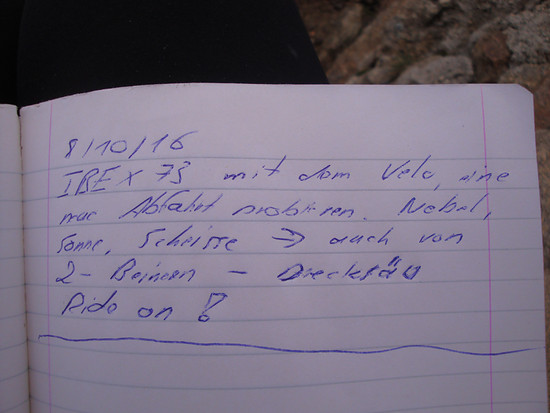 8/10/16
IBEX 73 mit dem Velo, eine
nue Abfahrt probieren. Nebel,
Sonne, Scheisse → auch von
2-Beinern - Drecksäu
Ride on !